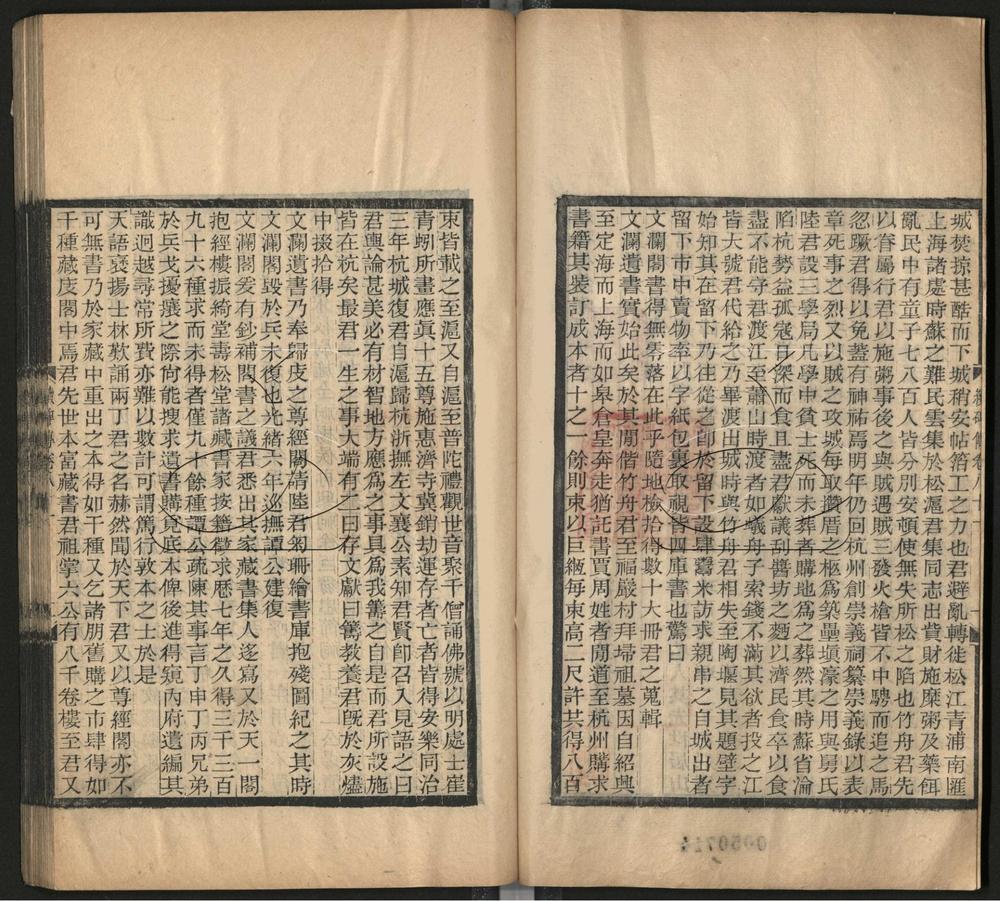 城焚掠甚酷而下城稍安帖箔工之力也君避亂轉徙松江青浦南匯
上海諸處時蘇之難民雲集於松滬君集同志出貲財施糜粥及藥餌
亂民中有童子七八百人皆分別安頓使無失所松之陷也竹舟君先
以眷屬行君以施粥事後之與賊遇賊三發火槍皆不中騁而追之馬
忽蹶君得以免蓋有神祐焉明年仍回杭州創崇義祠纂崇義錄以表
章死事之烈又以賊之攻城每取攢厝之柩為築壘塡濠之用與舅氏
陸君設三學局凡學中貧士死而未葬者購地為之葬然其時蘇省淪
陷杭勢益孤寇日深而食且盡君獻議刮醬坊之麵以濟民食卒以食
盡不能守君渡江至蕭山時渡者如蟻舟子索錢不滿其欲者投之江
皆大號君代給之乃畢渡出城時與竹舟君相失至陶堰見其題壁字
始知其在留下乃往從之卽於留下設肆鬻米訪求親串之自城出者
留下市中賣物率以字紙包裹取視皆四庫書也驚曰
文瀾閣書得無零落在此乎隨地檢拾得數十大冊君之蒐輯
文瀾遺書實始此矣於其閒偕竹舟君至福嚴村拜埽祖墓因自紹興
至定海而上海而如皋倉皇奔走猶託書賈周姓者閒道至杭州購求
書籍其裝訂成本者十之一餘則束以巨緪每束高二尺許共得八百
束皆載之至滬又自滬至普陀禮觀世音聚千僧誦佛號以明處士崔
青蚓所畫應眞十五尊施惠濟寺冀銷劫運存者亡者皆得安樂同治
三年杭城復君自滬歸杭浙撫左文襄公素知君賢卽召入見語之曰
君輿論甚美必有材智地方應為之事具為我籌之自是而君所設施
皆在杭矣最君一生之事大端有二曰存文獻曰篤教養君旣於灰燼
中掇拾得
文瀾遺書乃奉歸庋之尊經閣請陸君笏珊繪書庫抱殘圖紀之其時
文瀾閣毀於兵未復也光緒六年巡撫譚公建復
文瀾閣爰有鈔補閣書之議君悉出其家藏書集人迻寫又於天一閣
抱經樓振綺堂壽松堂諸藏書家按籤徵求歷七年之久得三千三百
九十六種求而未得者僅九十餘種譚公疏陳其事言丁申丁丙兄弟
於兵戈擾攘之際尙能搜求遺書購覓底本俾後進得窺內府遺編其
識迥越尋常所費亦難以數計可謂篤行敦本之士於是
天語襃揚士林歎誦兩丁君之名赫然聞於天下君又以尊經閣亦不
可無書乃於家藏中重出之本得如干種又乞諸朋舊購之市肆得如
干種藏庋閣中焉君先世本富藏書君祖掌六公有八千卷樓至君又
0050714